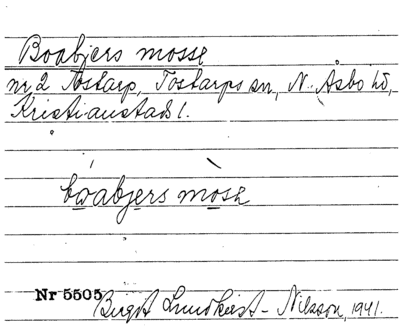 Boabjers mosse
nr 2 Tostarp, Tostarps sn, N. Åsbo hd,
Kristianstads l.
bωabjers mosɛ
Nr 5505
Birgit Lundkvist-Nilsson, 1941.